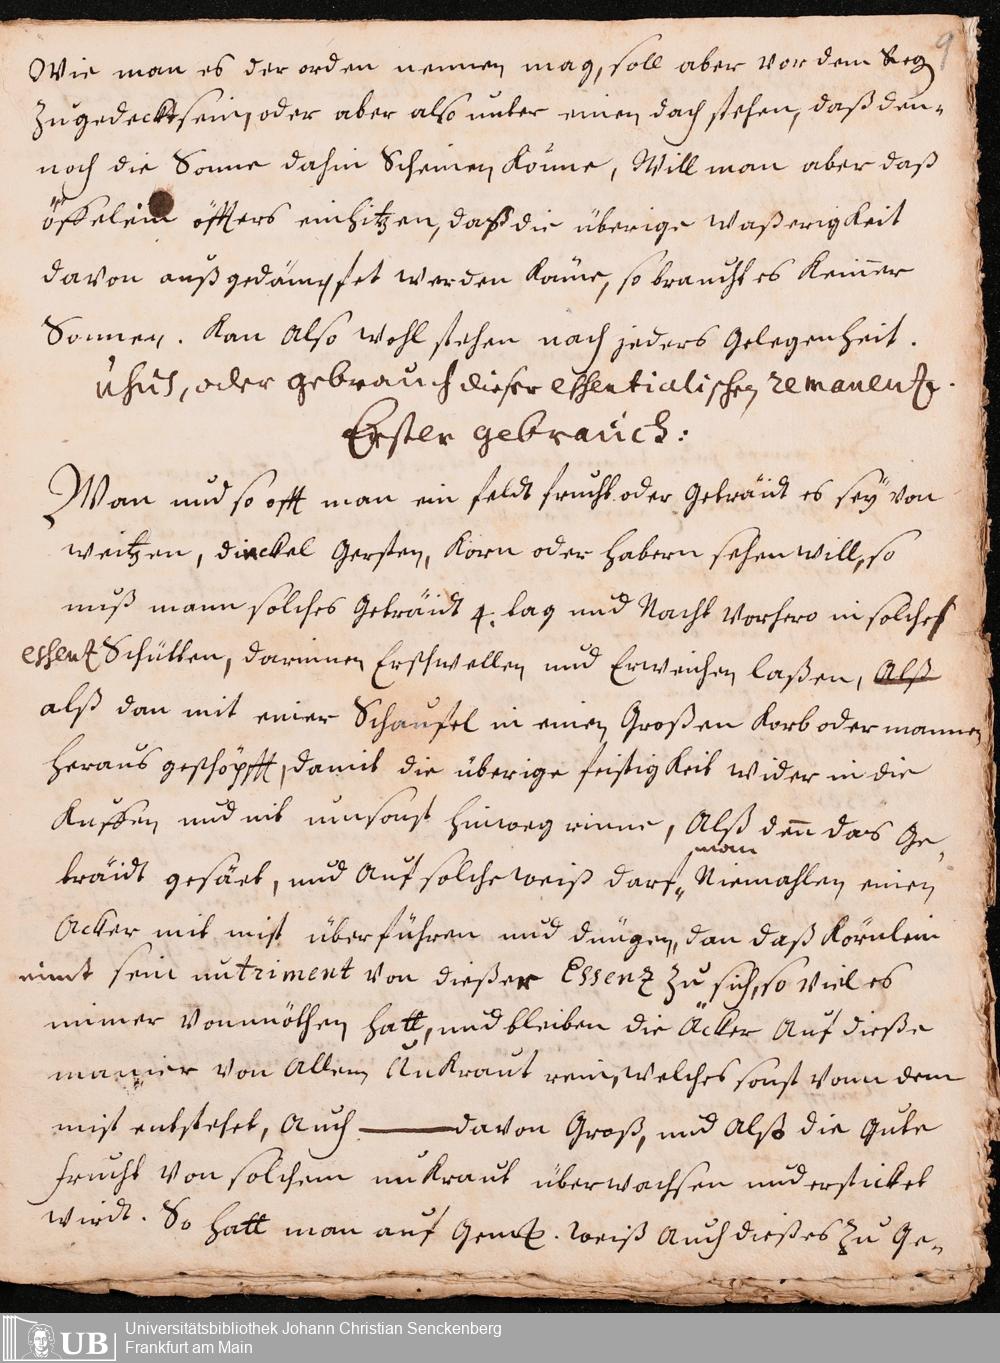 9
Wie man es der orden nennen mag, soll aber vor dem Reg
zugedeckt sein, oder aber also unter einen dach stehen, daß den-
noch die Sonne dahin Scheinen Könne, Will man aber daß
öffelein öffters einhitzen, daß die überige waßerigkeit
davon außgedämpffet werden Könne, so braucht es Keiner
Sonnen. Kan Also wohl stehen nach jeders Gelegenheit.
Usus, oder gebrauch dieser essentialischen remanentz.
Erster gebrauch:
Wan und so offt man ein feldt frucht oder Geträidt es seÿ von
weitzen, dinckel Gersten, Korn oder habern sehen will, so
muß mann solches Geträidt 4. tag und Nacht Vorhero in solches
essentz Schütten, darinnen Erschwellen und Erweichen laßen, Alß
alß dan mit einer Schaufel in einen Großen Korb oder mannen
heraus geschöpfft, damit die überige feistigkeit wider in die
Kuffen und nit umsonst hinweg rinne, Alß den̄ das Ge-
träidt gesäet, und Auf solche weiß darf man Niemahlen einen
Acker mit mist überführen und düngen, dan daß Körnlein
nimt sein nutriment von dießer Essenz zu sich, so viel es
immer vonnöthen hatt, und bleiben die Äcker Auf dieße
manier von Allem UnKraut rein, welches sonst vonn dem
mist entstehet, Auch davon Groß, und Alß die Gute
frucht von solchem unKraut überwachsen und ersticket
wirdt. So hatt man auf Gemelt. weiß Auch dießes zu Ge-
UB
Universitätsbibliothek Johann Christian Senckenberg
Frankfurt am Main